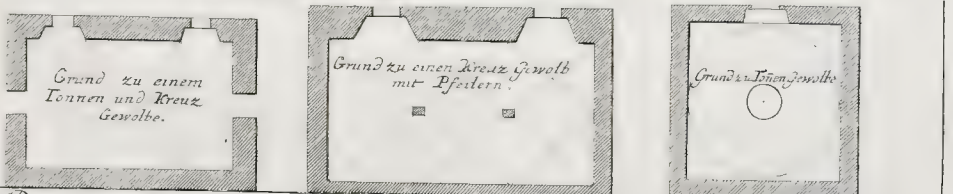 Grund zu einem
Tonnen und Kreuz
Gewolbe.
Grund zu einen Kreuz Gewolb
mit Pfeilern.
Grund zu Toñen Gewolbe